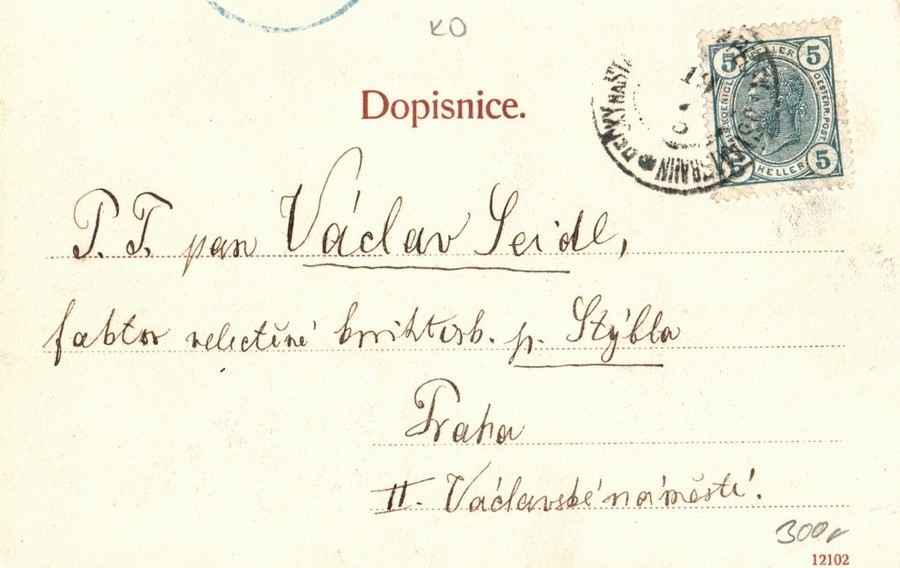 KO
Dopisnice.
5 HELLER 5
OESTERR. POST
5 HELLER 5
P. T. pan Václav Seidl,
faktor velectěné knihtisk. p. Stýbla
Praha
II. Václavské náměstí.
300,-
12102